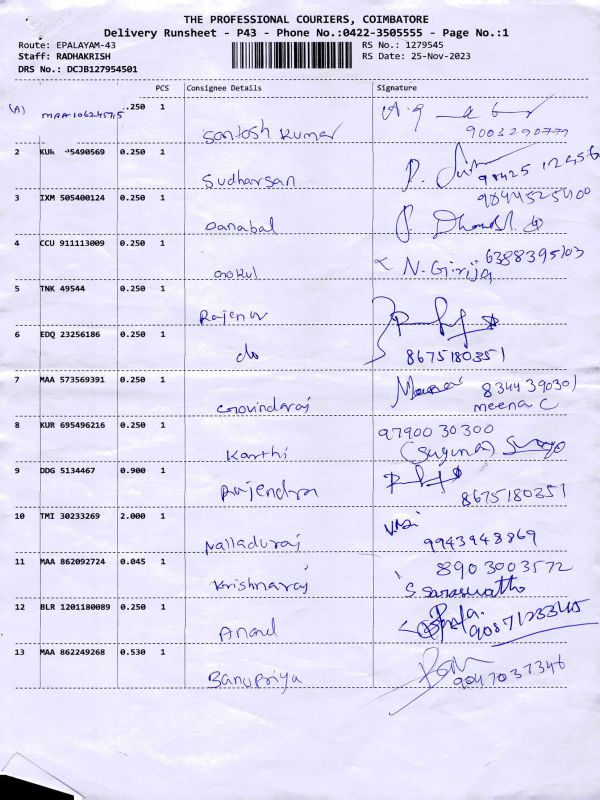 THE PROFESSIONAL COURIERS, COIMBATORE
Delivery Runsheet - P43 - Phone No.:0422-3505555 - Page No.:1
Route: EPALAYAM-43 RS No.: 1279545
Staff: RADHAKRISH RS Date: 25-Nov-2023
DRS No.: DCJB127954501
PCS Consignee Details Signature
(A) MAA 106245715 .250 1
Santosh Kumar 9003290779
2 KUR 5490569 0.250 1
Sudharsan 98425 12456
3 IXM 505400124 0.250 1 9844525400
Danabal P. Dhanabal
4 CCU 911113009 0.250 1 6388395103
Gokul N. Girija
5 TNK 49544 0.250 1
Rajendr
6 EDQ 23256186 0.250 1
do 8675180351
7 MAA 573569391 0.250 1 8344390301
Govindaraj meena C
8 KUR 695496216 0.250 1 9790030300
Karthi (Suguna)
9 DDG 5134467 0.900 1
Rajendra 8675180351
10 TMI 30233269 2.000 1
Nalladuraj 9943948869
11 MAA 862092724 0.045 1 8903003572
Krishnaraj S Saraswathi
12 BLR 1201180089 0.250 1
Anand 9087123345
13 MAA 862249268 0.530 1
Banupriya 9047037346